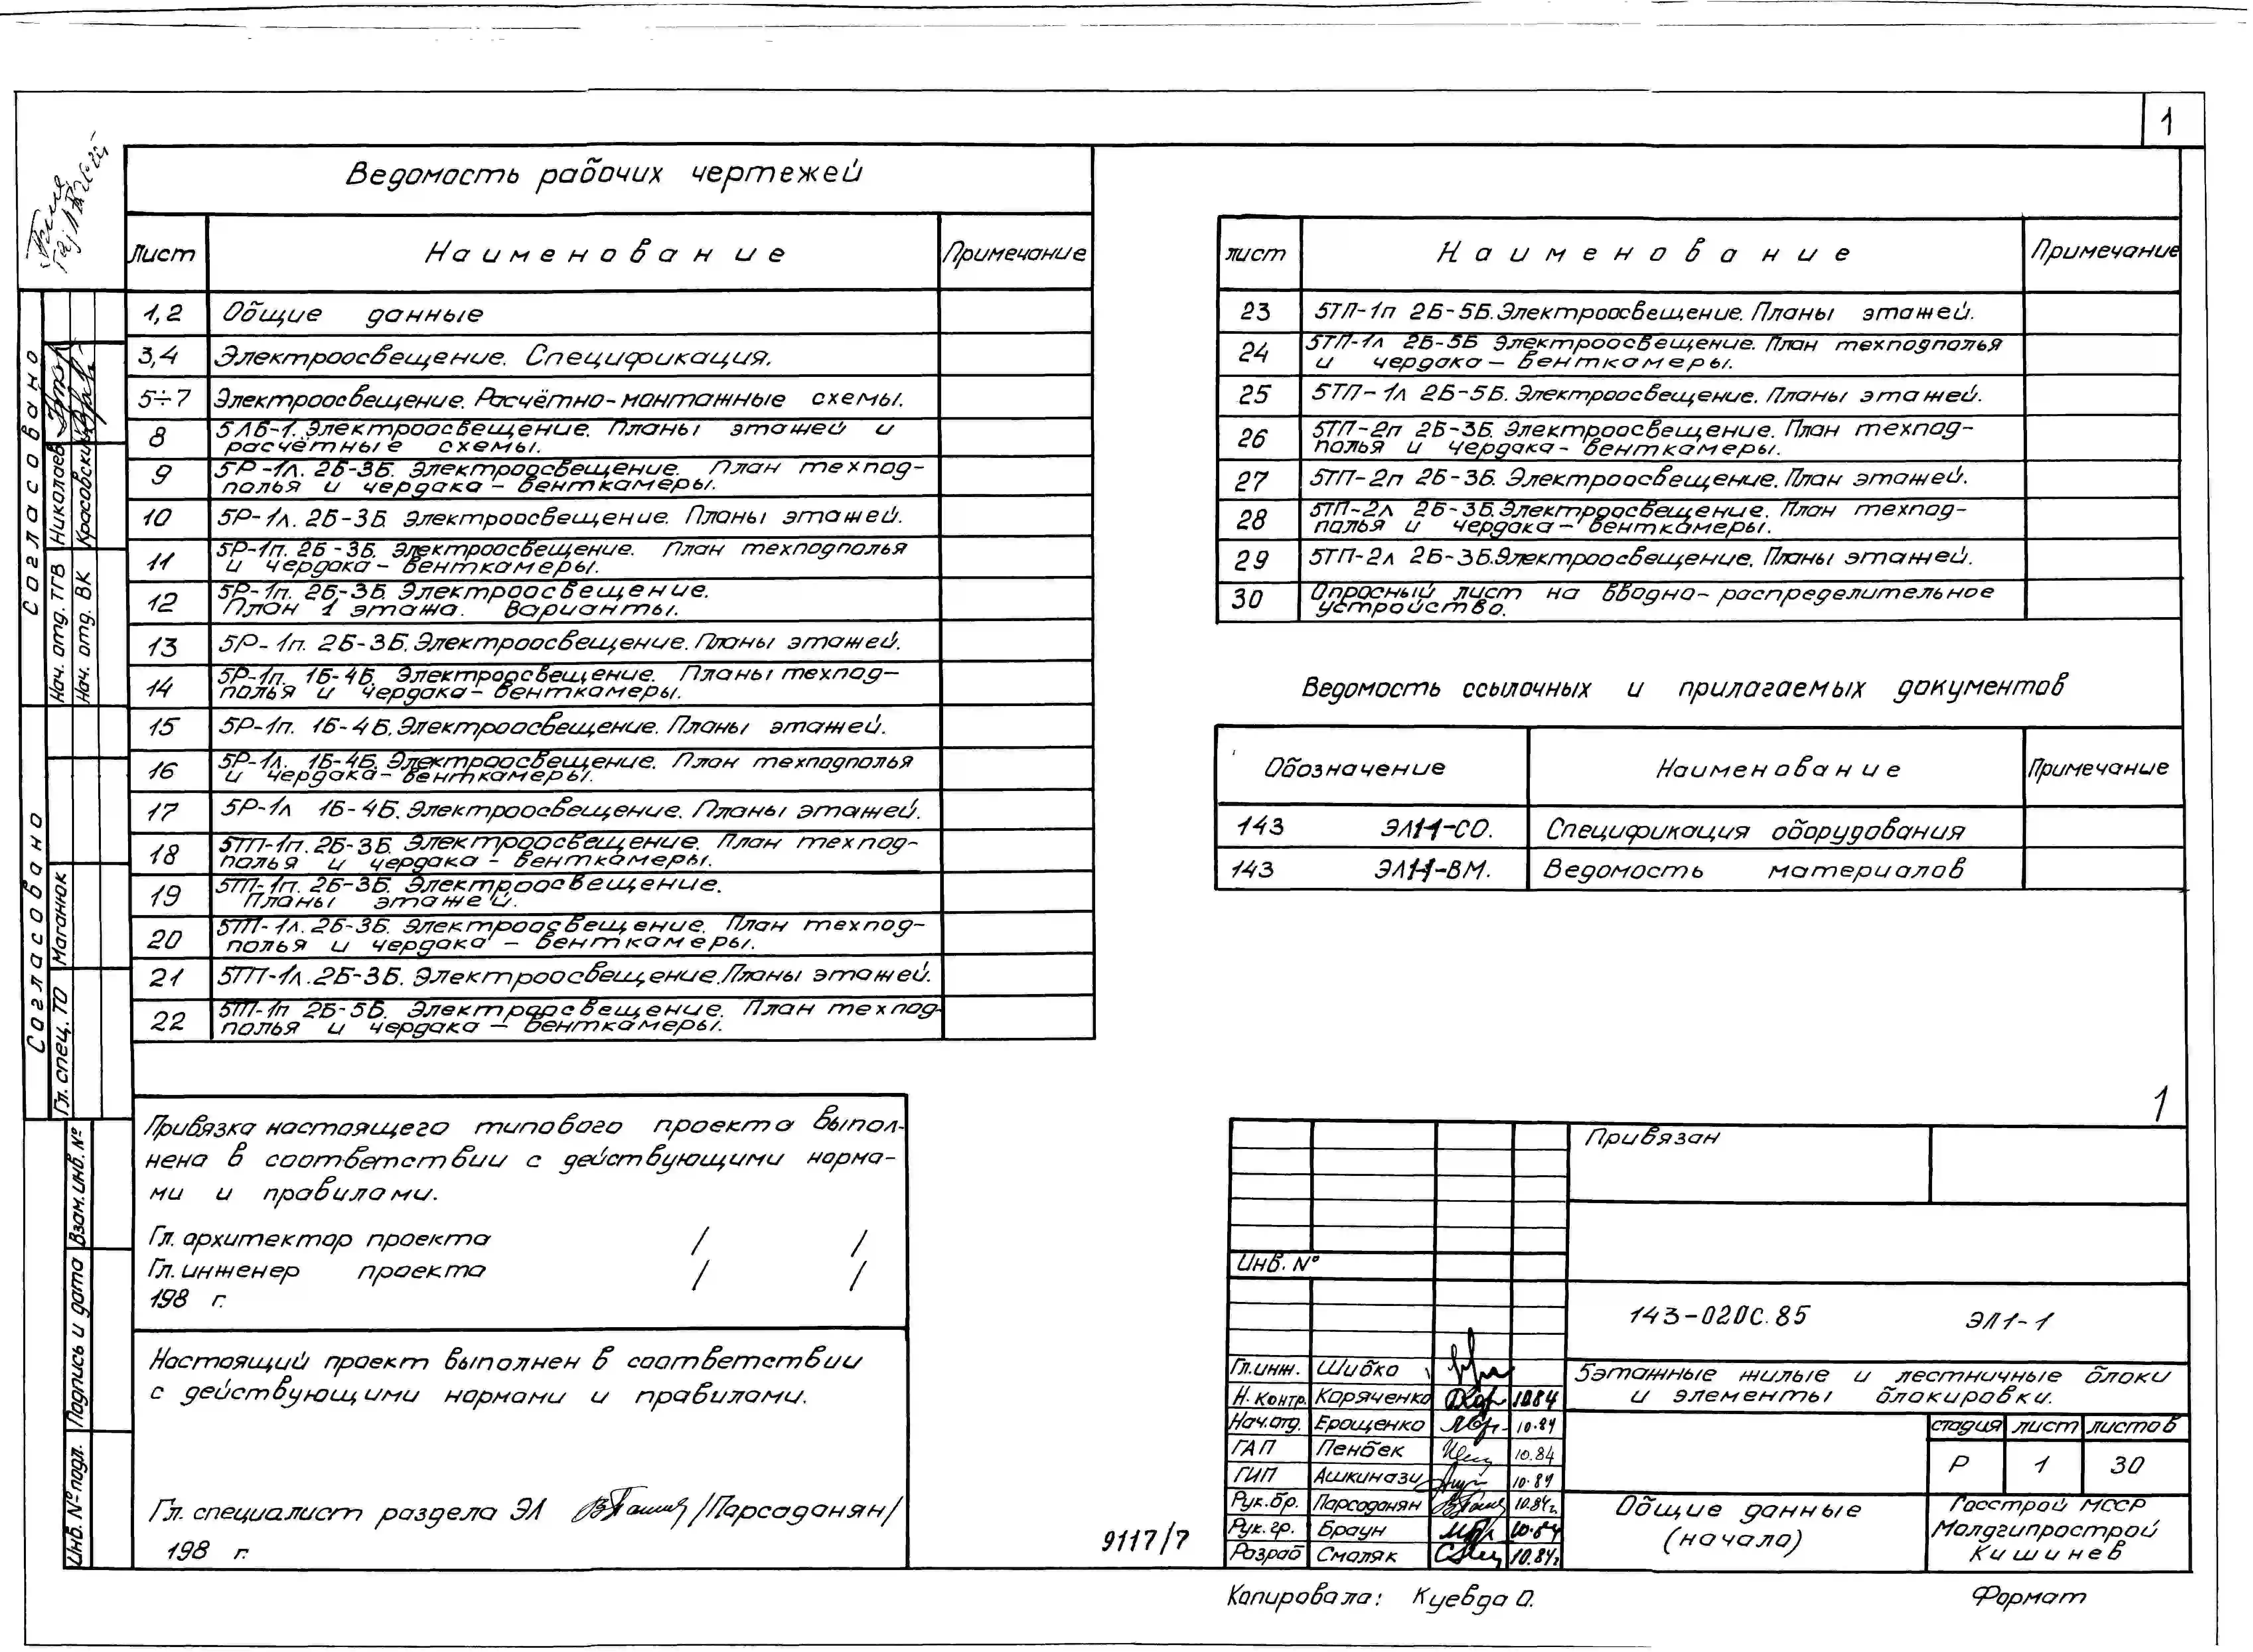 1
Ведомость рабочих чертежей
Лист Наименование Примечание
1,2 Общие данные
3,4 Электроосвещение. Спецификация.
5÷7 Электроосвещение. Расчётно-монтажные схемы.
8 5ЛБ-1. Электроосвещение. Планы этажей и
расчётные схемы.
9 5Р-1л. 2Б-3Б. Электроосвещение. План техпод-
полья и чердака - венткамеры.
10 5Р-1л. 2Б-3Б. Электроосвещение. Планы этажей.
11 5Р-1п. 2Б-3Б. Электроосвещение. План техподполья
и чердака - венткамеры.
12 5Р-1п. 2Б-3Б. Электроосвещение.
План 1 этажа. Варианты.
13 5Р-1п. 2Б-3Б. Электроосвещение. Планы этажей.
14 5Р-1п. 1Б-4Б. Электроосвещение. Планы техпод-
полья и чердака - венткамеры.
15 5Р-1п. 1Б-4Б. Электроосвещение. Планы этажей.
16 5Р-1л. 1Б-4Б. Электроосвещение. План техподполья
и чердака - венткамеры.
17 5Р-1л 1Б-4Б. Электроосвещение. Планы этажей.
18 5ТП-1п. 2Б-3Б. Электроосвещение. План техпод-
полья и чердака - венткамеры.
19 5ТП-1п. 2Б-3Б. Электроосвещение.
Планы этажей.
20 5ТП-1л. 2Б-3Б. Электроосвещение. План техпод-
полья и чердака - венткамеры.
21 5ТП-1л. 2Б-3Б. Электроосвещение. Планы этажей.
22 5ТП-1п 2Б-5Б. Электроосвещение. План техпод-
полья и чердака - венткамеры.
лист Наименование Примечание
23 5ТП-1п 2Б-5Б. Электроосвещение. Планы этажей.
24 5ТП-1л 2Б-5Б Электроосвещение. План техподполья
и чердака - венткамеры.
25 5ТП-1л 2Б-5Б. Электроосвещение. Планы этажей.
26 5ТП-2п 2Б-3Б. Электроосвещение. План техпод-
полья и чердака - венткамеры.
27 5ТП-2п 2Б-3Б. Электроосвещение. План этажей.
28 5ТП-2л 2Б-3Б. Электроосвещение. План техпод-
полья и чердака - венткамеры.
29 5ТП-2л 2Б-3Б. Электроосвещение. Планы этажей.
30 Опросный лист на вводно-распределительное
устройство.
Ведомость ссылочных и прилагаемых документов
Обозначение Наименование Примечание
143 ЭЛ1-1-СО. Спецификация оборудования
143 ЭЛ1-1-ВМ. Ведомость материалов
Согласовано
Нач. отд. ТГВ Николаев
Нач. отд. ВК Красовский
Согласовано
Гл. спец. ТО Маганюк
Взам.инв.№
Подпись и дата
Инв.№подл.
Привязка настоящего типового проекта выпол-
нена в соответствии с действующими норма-
ми и правилами.
Гл. архитектор проекта / /
Гл. инженер проекта / /
198 г.
Настоящий проект выполнен в соответствии
с действующими нормами и правилами.
Гл. специалист раздела ЭЛ /Парсаданян/
198 г.
9117/7
1
Привязан
Инв. №
143-020С.85 ЭЛ1-1
Гл.инж. Шибко
Н. контр. Каряченко 10.84
Нач.отд. Ерощенко 10.84
ГАП Пенбек 10.84
ГИП Ашкинази 10.84
Рук.бр. Парсаданян 10.84г.
Рук.гр. Браун 10.84
Разраб Смаляк 10.84г
5этажные жилые и лестничные блоки
и элементы блокировки.
стадия лист листов
Р 1 30
Общие данные
(начало)
Госстрой МССР
Молдгипрострой
Кишинев
Копировала: Куевда О.
Формат